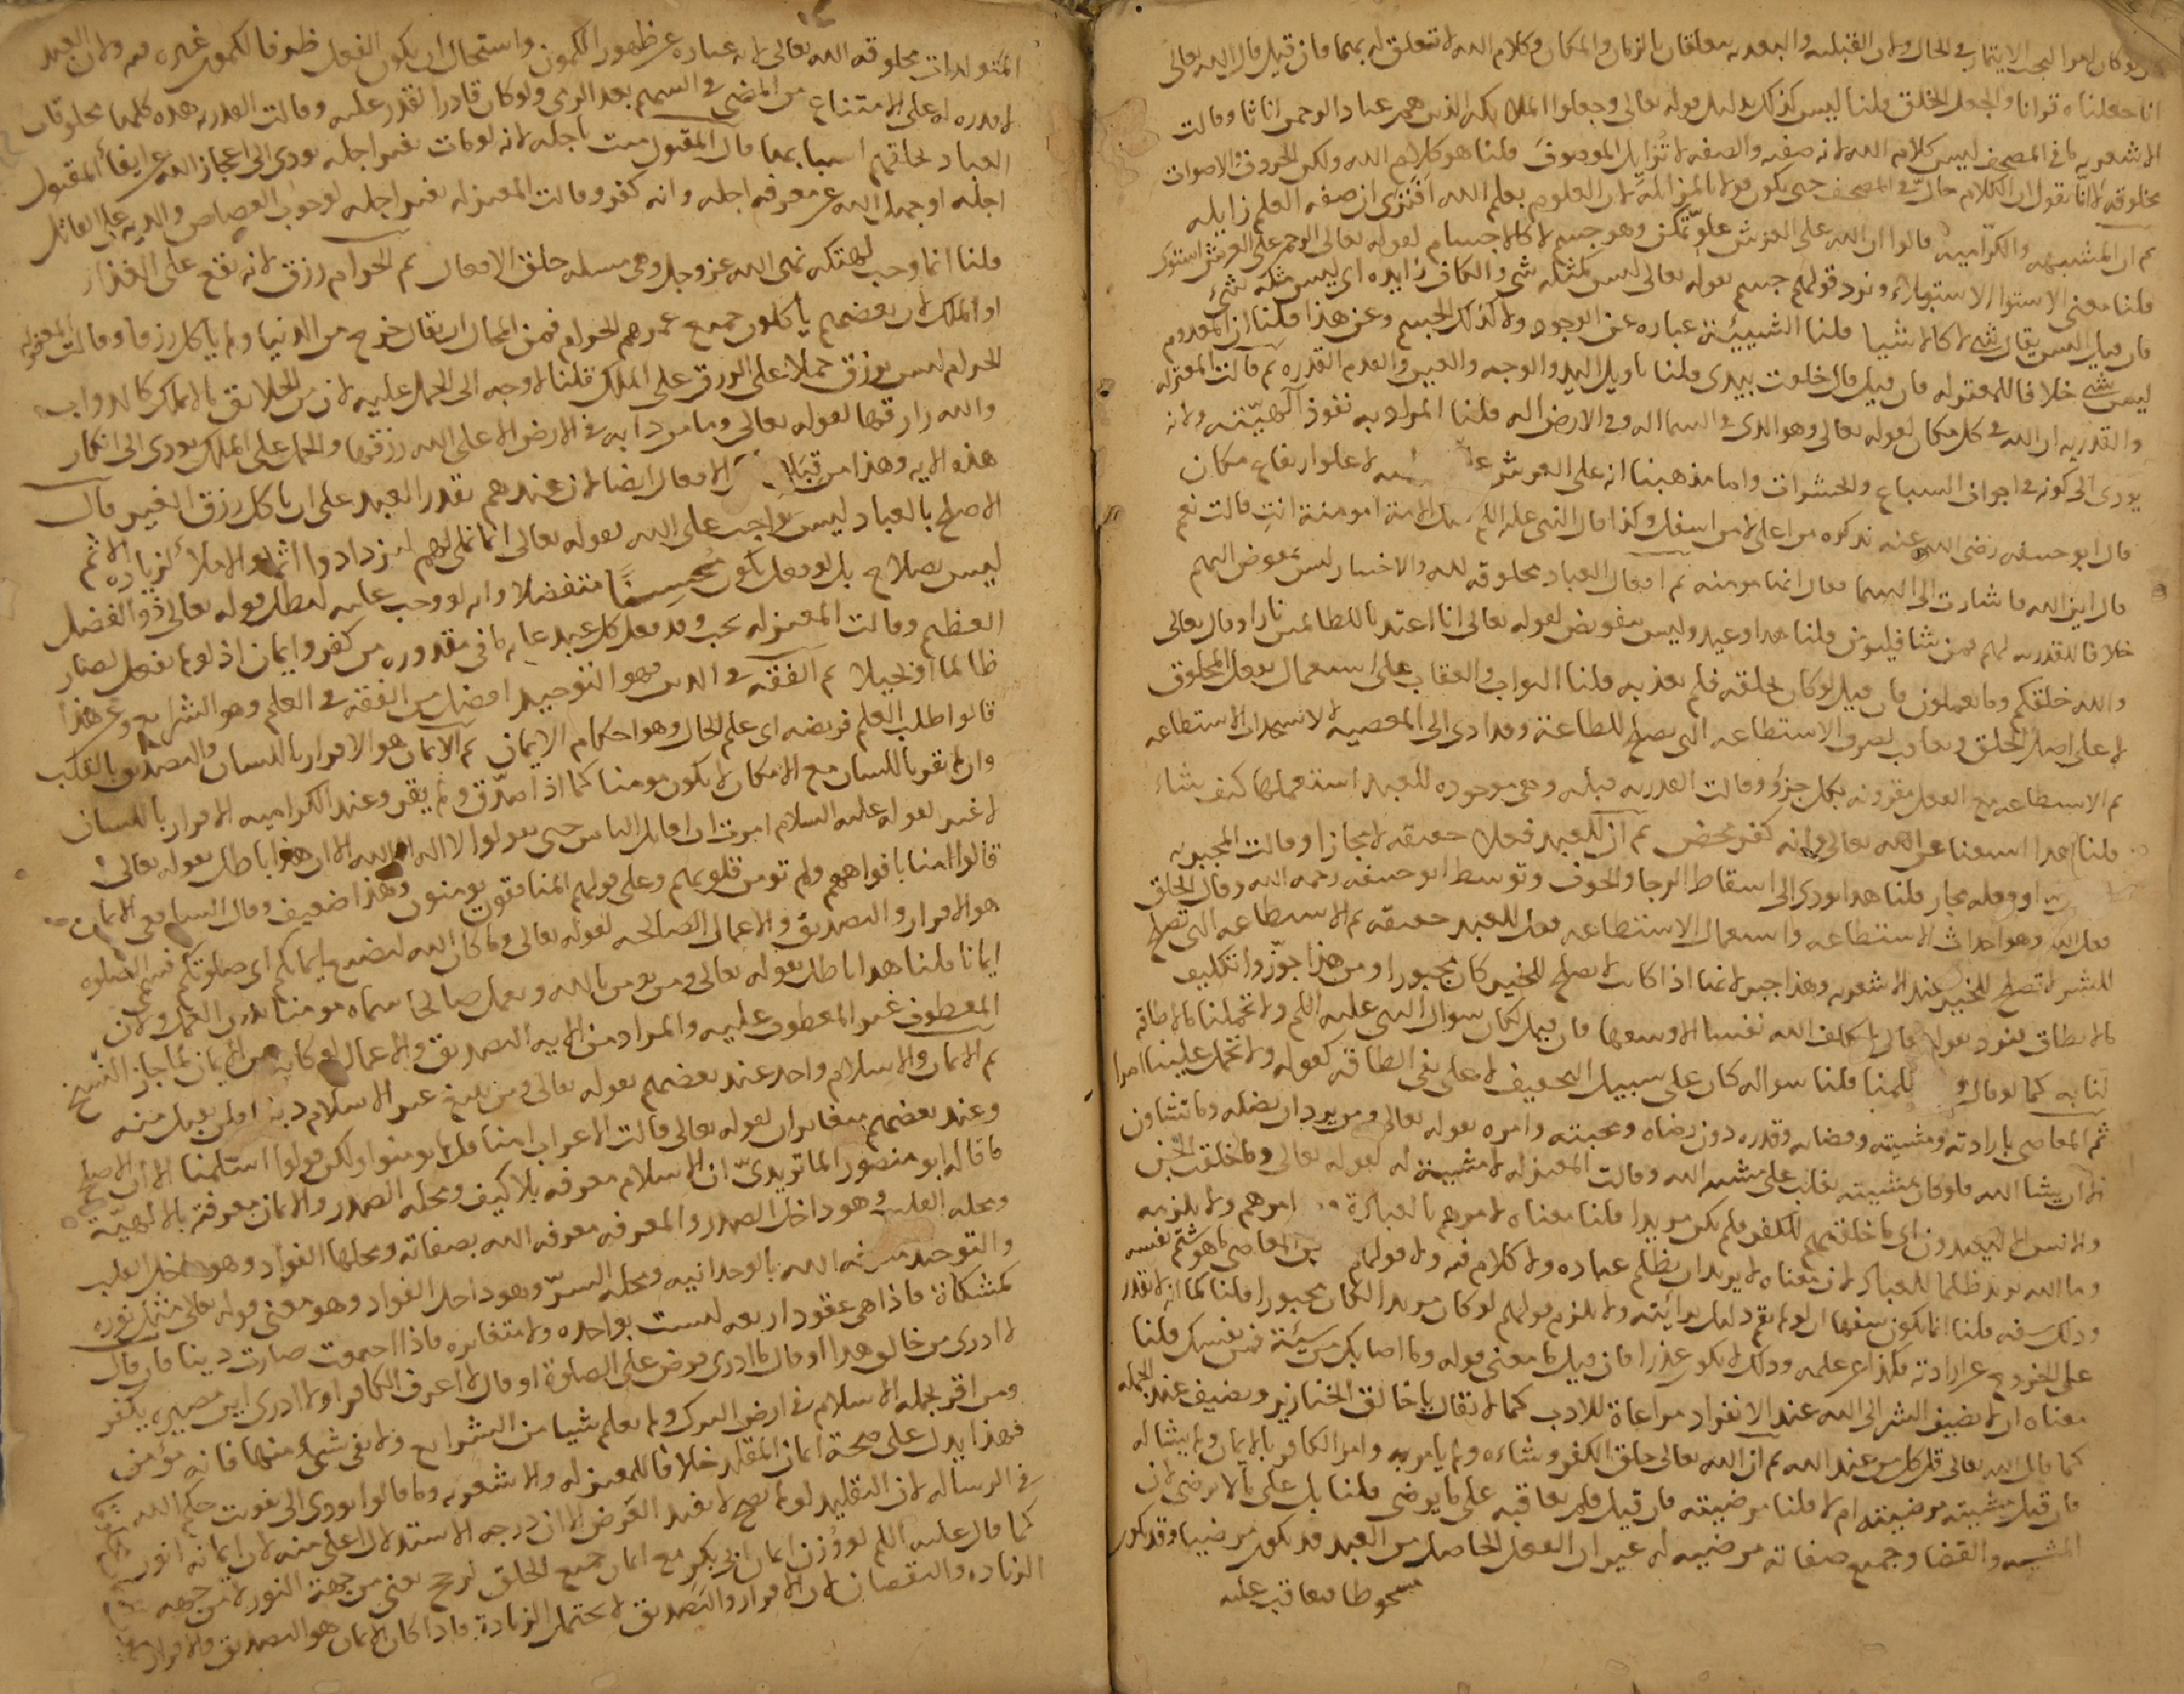 ولو كان امر البحب الايتمار في الحال ولان القبليه والبعديه يتعلقان بالزمان والمكان وكلام الله لا تتعلق له بهما فان قيل قال الله تعالى
انا جعلناه قرانا والجعل الخلق قلنا ليس كذلك بدليل قوله تعالى وجعلوا الملايكه الذين هم عباد الرحمن اناثا وقالت
الاشعريه ما في المصحف ليس كلام الله لانه صفه والصفه لا تزايل الموصوف قلنا هو كلام الله ولكن الحروف والاصوات
مخلوقه لانا نقول ان الكلام حال في المصحف حتى يكون قولا بالمزايله لان العلوم بعلم الله افترى ان صفه العلم زايله
ثم ان المشبهه والكراميه قالوا ان الله على العرش علو تمكن وهو جسم لا كالاجسام لقوله تعالى الرحمن على العرش استوى
قلنا معنى الاستوا الاستيلاء ونرد قولهم جسم بقوله تعالى ليس كمثله شي والكاف زايده اي ليس مثله شي
فان قيل اليس يقال شي لا كالاشيا قلنا الشيئية عباره عن الوجود ولا كذلك الجسم وعن هذا قلنا ان المعدوم
ليس بشي خلافا للمعتزله فان قيل قال خلقت بيدي قلنا تاويل اليد والوجه والعين والقدم القدره ثم قالت المعتزله
والقدريه ان الله في كل مكان لقوله تعالى وهو الذي في السما اله وفي الارض اله قلنا المراد به نفوذ الهيته ولانه
يودي الى كونه في اجواف السباع والحشرات واما مذهبنا انه على العرش علو لا علو ارتفاع مكان
قال ابو حنيفه رضي الله عنه نذكره من اعلى لا من اسفل وكذا قال النبي عليه السلم لتلك الامة امومنة انت قالت نعم
قال اين الله فاشارت الى السما فقال انها مومنه ثم افعال العباد مخلوقه لله والاختيار ليس بمفوض اليهم
خلافا للقدريه لهم فمن شا فليومن قلنا هذا وعيد وليس بتفويض لقوله تعالى انا اعتدنا للظالمين نارا وقال تعالى
والله خلقكم وما تعملون فان قيل لو كان بخلقه فلم يعذبه قلنا الثواب والعقاب على استعمال الفعل المخلوق
لا على اصل الخلق ويعاقب لصرف الاستطاعه التي تصلح للطاعة وقد ادى الى المعصيه لا لاستحداث الاستطاعه
ثم الاستطاعه مع الفعل مقرونه بكل جزؤ وقالت القدريه قبله وهي موجوده للعبد استعملها كيف شاء
قلنا هذا استغنا عن الله تعالى وانه كفر محض ثم ان للعبد فعلا حقيقه لا مجازا وقالت المجبريه
او فعله مجاز قلنا هذا يودي الى اسقاط الرجا والخوف وتوسط ابو حنيفه رحمه الله وقال الخلق
فعل الله وهو احداث الاستطاعه واستعمال الاستطاعه فعل للعبد حقيقه ثم الاستطاعه التي تصلح
للشر لا تصلح للخير عند الاشعريه وهذا جبر لانها اذا كانت لا تصلح للخير كان مجبورا ومن هذا جوزوا تكليف
ما لا يطاق فنرد بقوله قال لا يكلف الله نفسا الا وسعها فان قيل لكان سوال النبي عليه السلم ولا تحملنا ما لا طاقه
لنا به كما لو قال لا تظلمنا قلنا سواله كان على سبيل التخفيف لا على نفي الطاقه كقوله ولا تحمل علينا اصرا
ثم المعاصي بارادته ومشيته وقضائه وقدره دون رضاه ومحبته وامره لقوله تعالى ومن يرد ان يضله وما تشاون
الا ان يشا الله فلو كان بمشيته لغلبت على مشيه الله وقالت المعتزله لا مشيية له لقوله تعالى وما خلقت الجن
والانس الا ليعبدون اي ما خلقهم للكفر فلم يكن مريدا قلنا معناه لا مرهم بالعبادة امرهم ولا يلزمه
وما الله يريد ظلما للعباد لان معناه لا يريد ان يظلم عباده ولا كلام فيه ولا قولهم بان المعاصي ما هو شتم نفسه
وذلك سفه قلنا انما يكون سفها ان لو لم يقم دليل برائته ولا يلزم قولهم لو كان مريدا لكان مجبورا قلنا كما انه لا تقدر
على الخروج عن ارادته فكذا عن علمه وذلك لا يكون عذرا فان قيل ما معنى قوله وما اصابك من سيئة فمن نفسك قلنا
معناه ان لا نضيف الشر الى الله عند الانفراد مراعاة للادب كما لا يقال يا خالق الخنازير ونضيف عند الجمله
كما قال الله تعالى قل كل من عند الله ثم ان الله تعالى خلق الكفر وشاءه ولم يامر به وامر الكافر بالايمان ولم يشا له
فان قيل مشيته مرضيته ام لا قلنا مرضيته فان قيل فلم يعاقبه على ما يرضى قلنا بل على ما لا يرضى لان
المشيه والقضا وجميع صفاته مرضيه له غير ان الفعل الحاصل من العبد قد يكون مرضيا وقد يكون
مسخوطا فيعاقب عليه
المتولدات مخلوقه الله تعالى لانه عباره عن ظهور الكمون واستحال ان يكون الفعل ظرفا لكمون غيره فيه ولان العبد
لا قدره له على الامتناع من المضي في السهم بعد الرمي ولو كان قادرا لقدر عليه وقالت القدريه هذه كلها مخلوقات
العباد لخلقهم اسبابها ثم قال المقتول ميت باجله لانه لو مات بغير اجله يودي الى اعجاز الله عن ايفا المقتول
اجله او جهل الله عن معرفه اجله وانه كفر وقالت المعتزله بغير اجله لوجوب القصاص والديه على القاتل
قلنا انما وجب لهتكه نهي الله عز وجل وهي مسله خلق الافعال ثم الحرام رزق لانه يقع على الغذاء
او الملك لان بعضهم ياكلون جميع عمرهم الحرام فمن المحال ان يقال خرج من الدنيا ولم ياكل رزقا وقالت المعتزله
الحرام ليس برزق حملا على الورق على الملك قلنا لا وجه الى الحمل عليه لان من الخلايق ما لا يملك كالدواب
والله رازقها لقوله تعالى وما من دابه في الارض الا على الله رزقها والحمل على الملك يودي الى انكار
هذه الايه وهذا من قبل الافعال ايضا لان عندهم يقدر العبد على ان ياكل رزق الغير قال
الاصلح بالعباد ليس بواجب على الله لقوله تعالى انما نملي لهم ليزدادوا اثما والاملا لزياده الاثم
ليس بصلاح بل لو فعل يكون محسنا متفضلا وانه لو وجب عليه لبطل قوله تعالى ذو الفضل
العظيم وقالت المعتزله يجب وقد فعل كل عبد غايه ما في مقدوره من كفر وايمان اذ لو لم يفعل لصار
ظالما او بخيلا ثم الفقه في الدين وهو التوحيد افضل من الفقه في العلم وهو الشرايع وعن هذا
قالوا طلب العلم فريضه اي علم الحال وهو احكام الايمان ثم الايمان هو الاقرار باللسان والتصديق بالقلب
وان لم يقر باللسان مع الامكان لا يكون مومنا كما اذا صدق ولم يقر وعند الكراميه الاقرار باللسان
لا غير لقوله عليه السلام امرت ان اقاتل الناس حتى يقولوا لا اله الا الله الا ان هذا باطل بقوله تعالى
قالوا امنا بافواههم ولم تومن قلوبهم وعلى قولهم المنافقون يومنون وهذا ضعيف وقال الشافعي الايمان
هو الاقرار والتصديق والاعمال الصالحه لقوله تعالى وما كان الله ليضيع ايمانكم اي صلوتكم فسمى الصلوه
ايمانا قلنا هذا باطل بقوله تعالى ومن يومن بالله ويعمل صالحا سماه مومنا بدون العمل ولان
المعطوف غير المعطوف عليه والمراد من الايه التصديق والاعمال لو كانت من الايمان لما جاز النسخ
ثم الايمان والاسلام واحد عند بعضهم لقوله تعالى ومن يبتغ غير الاسلام دينا فلن يقبل منه
وعند بعضهم متغايران لقوله تعالى قالت الاعراب امنا قل لم تومنوا ولكن قولوا اسلمنا الا ان الاصح
ما قاله ابو منصور الماتريدي ان الاسلام معرفه بلا كيف ومحله الصدر والايمان معرفته بالالهيه
ومحله القلب وهو داخل الصدر والمعرفه معرفه الله بصفاته ومحلها الفواد وهو داخل القلب
والتوحيد معرفه الله بالوحدانيه ومحله السر وهو داخل الفواد وهو معنى قوله تعالى مثل نوره
كمشكاة فاذا هي عقود اربعه ليست بواحده ولا متغايره فاذا اجتمعت صارت دينا فان قال
لا ادري من خالق هذا او قال لا ادري فرض علي الصلوة او قال لا اعرف الكافر او لا ادري اين مصيره يكفر
ومن اقر بجمله الاسلام في ارض الترك ولم يعلم شيا من الشرايع ولا يفي شي منها فانه مؤمن
فهذا يدل على صحة ايمان المقلد خلافا للمعتزله والاشعريه وما قالوا يودي الى تفويت حكم الله
في الرساله لان التقليد لو لم يصح لا يفيد الغرض الا ان درجه الاستدلال اعلى منه لان ايمانه انور
كما قال عليه السلم لو وزن ايمان ابي بكر مع ايمان جميع الخلق لرجح يعني من جهة النور لا من جهه
الزياده والنقصان لان الاقرار والتصديق لا يحتمل الزيادة فاذا كان الايمان هو التصديق والاقرار